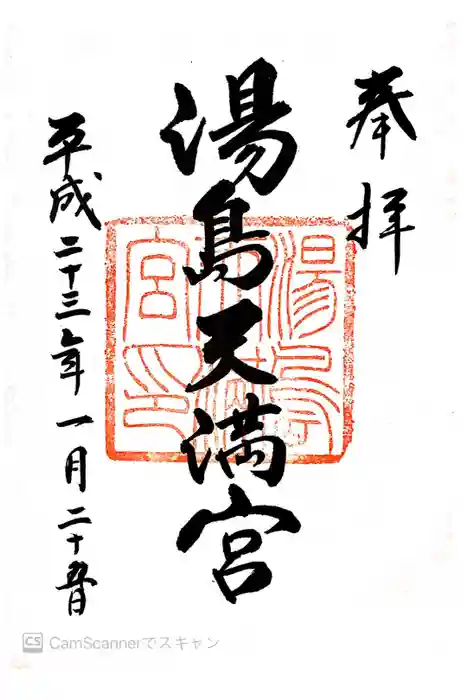 奉拝
湯島天満宮
平成二十三年一月二十五日
湯島天満宮印
CS CamScannerでスキャン